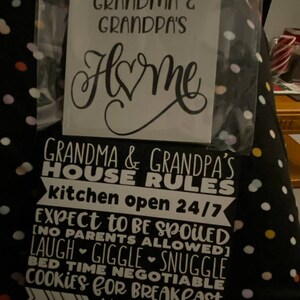 GRANDMA &
GRANDPA'S
Home
GRANDMA & GRANDPA'S
HOUSE RULES
Kitchen open 24/7
EXPECT TO BE SPOILED
[NO PARENTS ALLOWED]
LAUGH ♥ GIGGLE ♥ SNUGGLE
BED TIME NEGOTIABLE
COOKIES FOR BREAKFAST